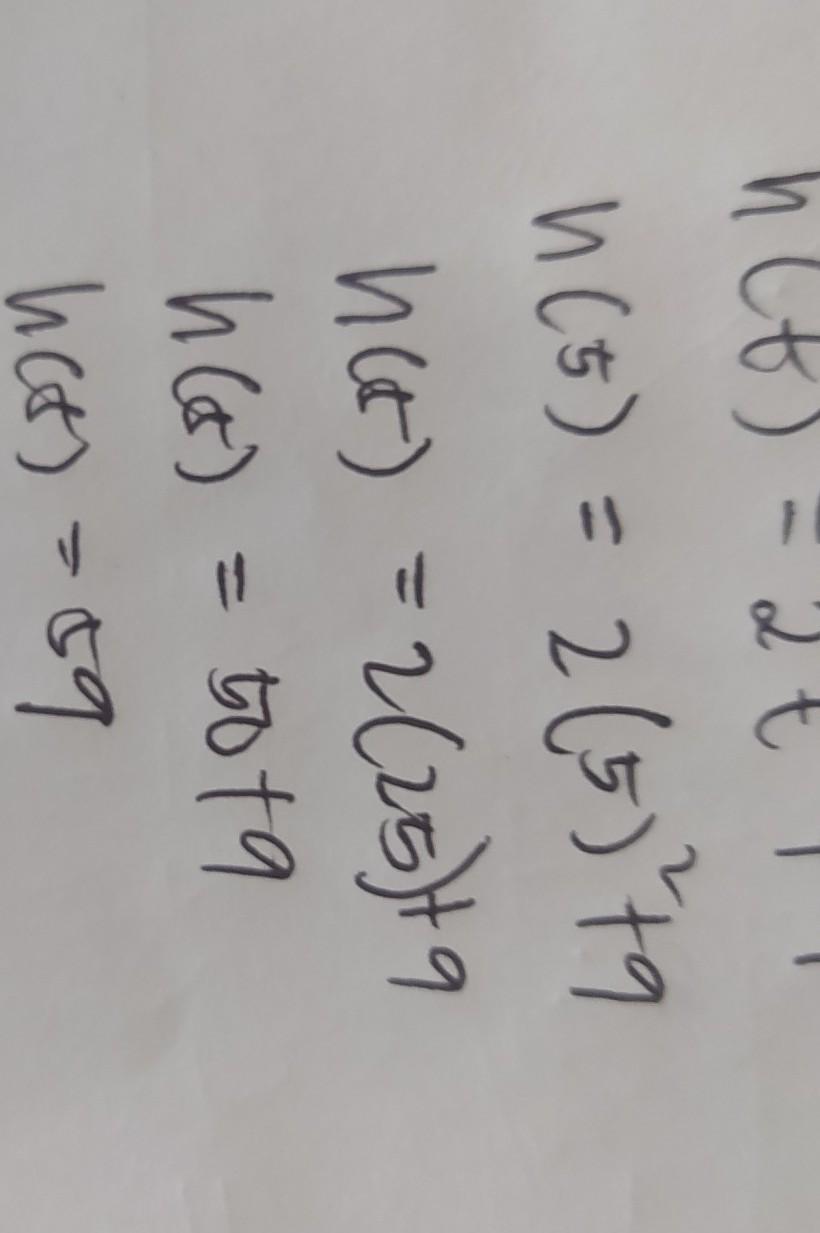 h(t) = 2t
h(5) = 2(5)²+9
h(t) = 2(25)+9
h(t) = 50+9
h(t) = 59